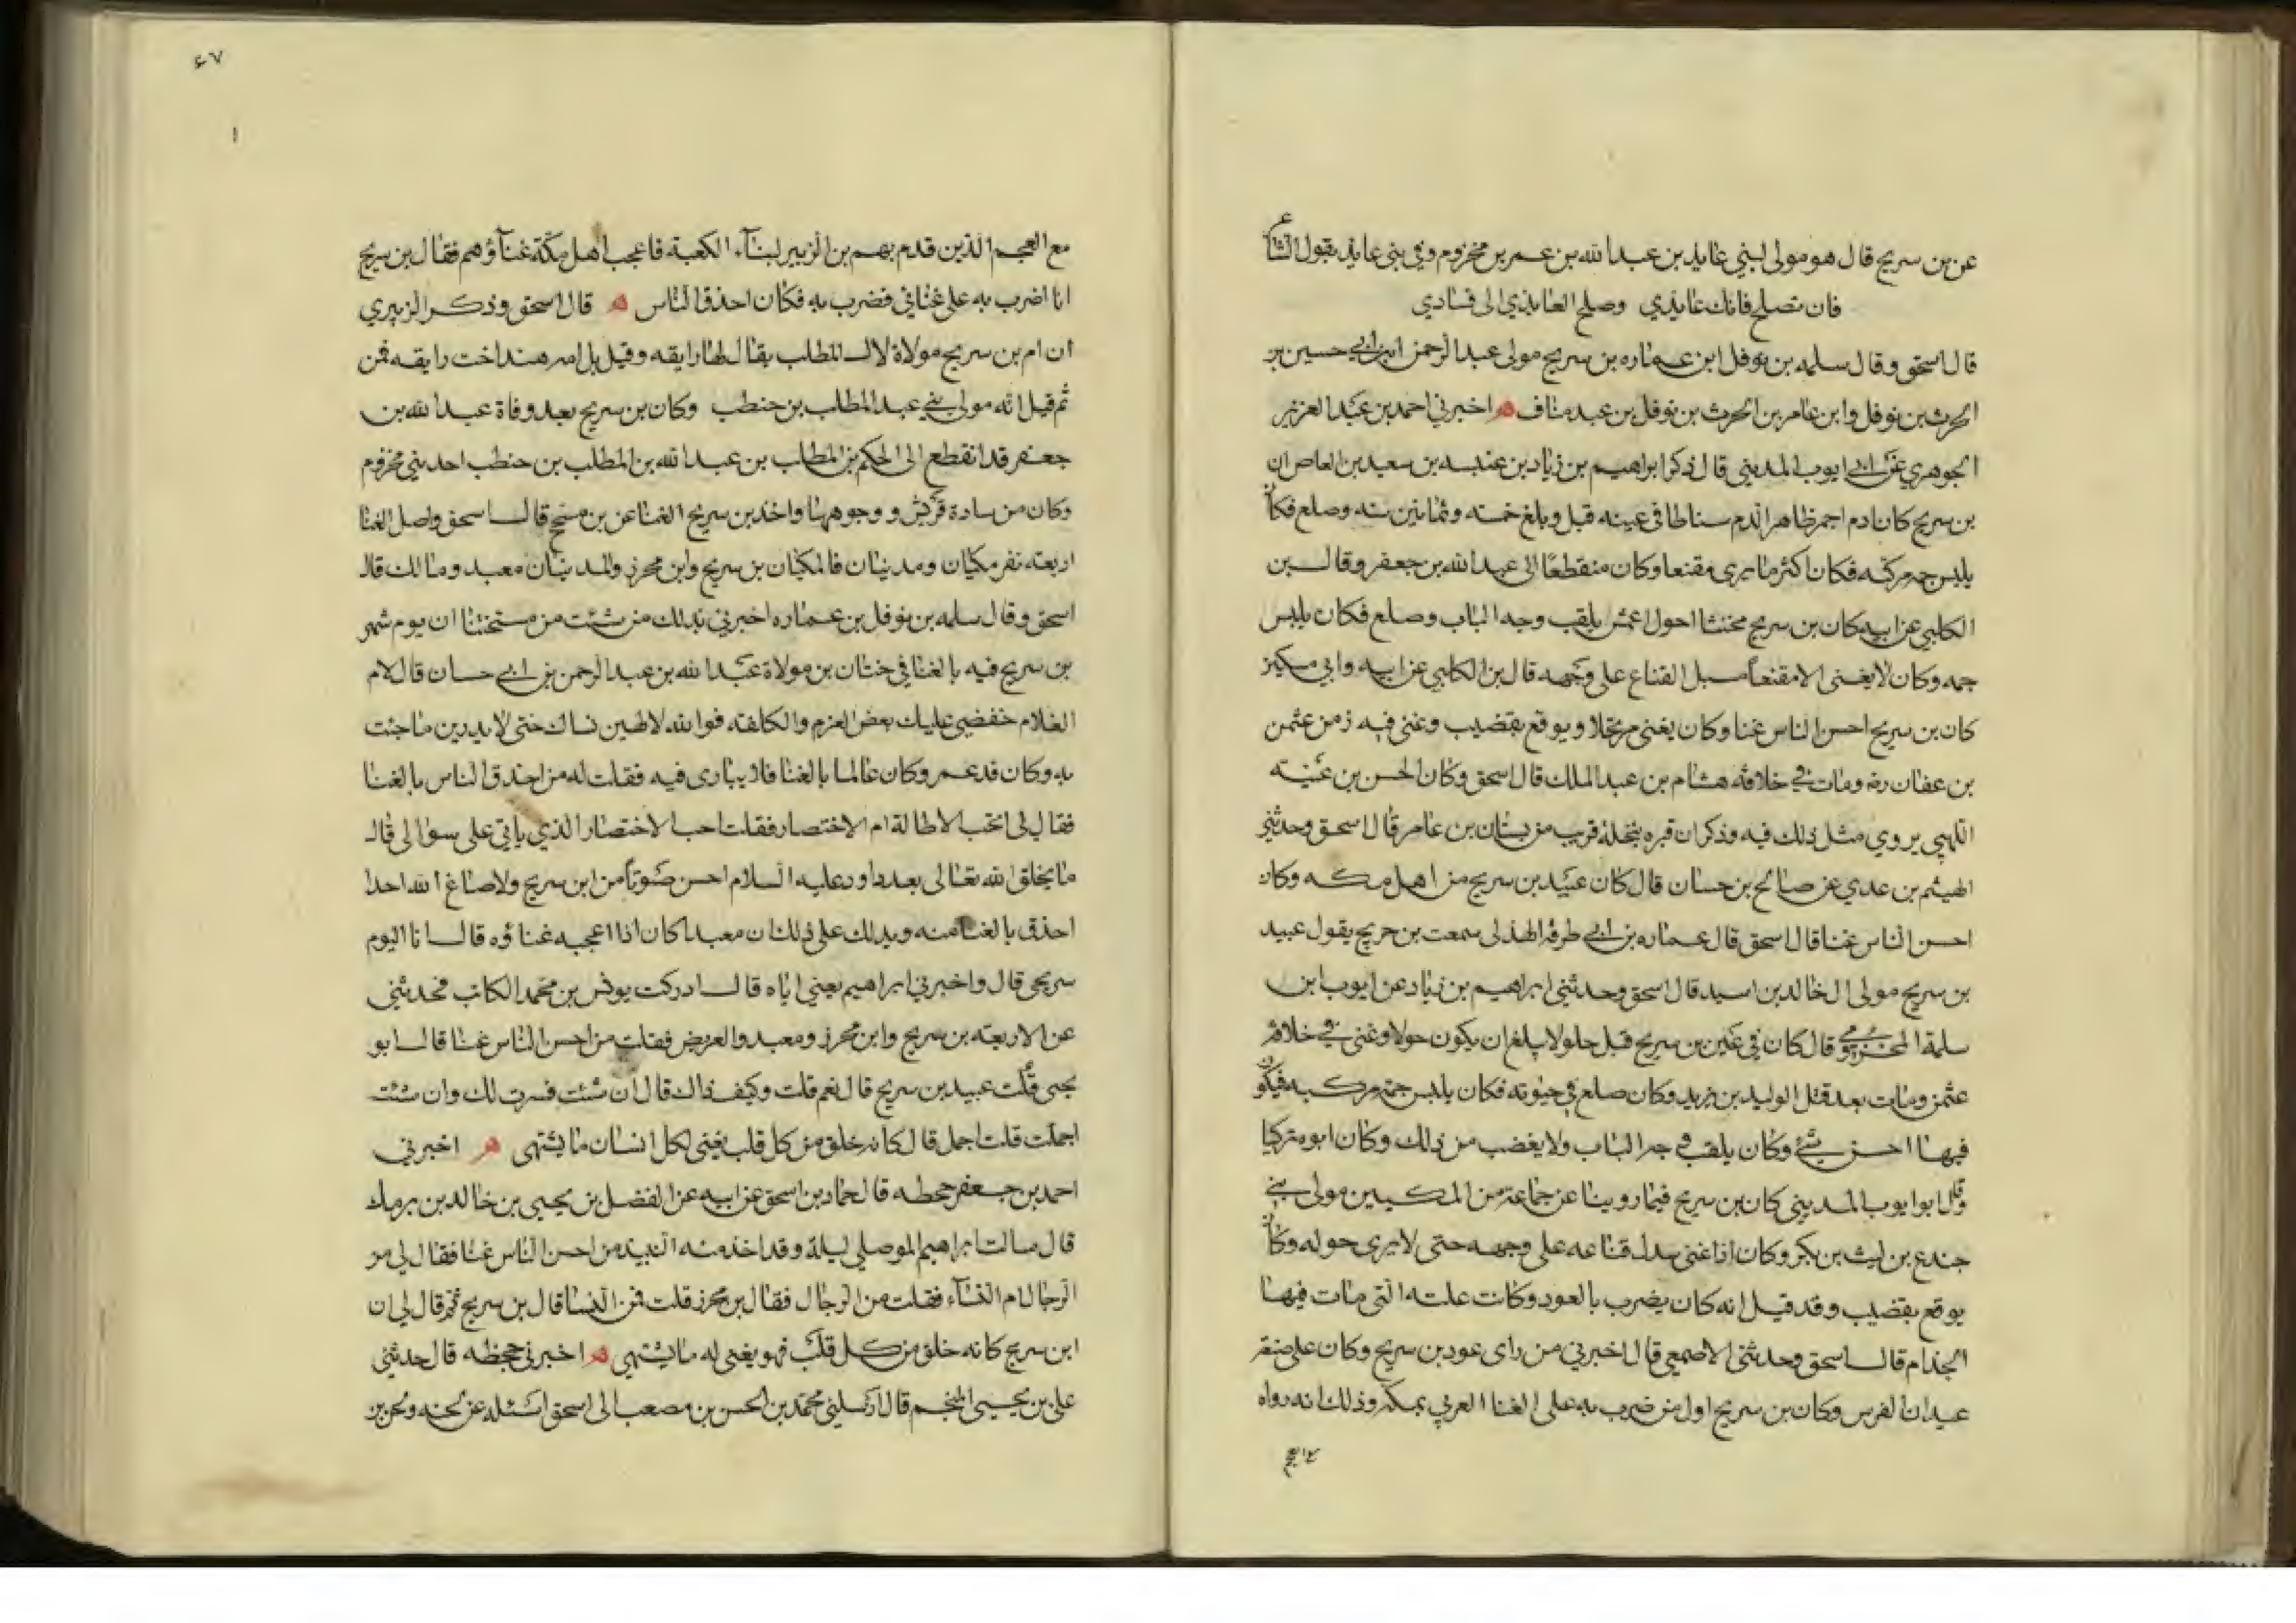 عن بن سريج قال هو مولى لبني عايد بن عبد الله بن عمر بن مخزوم وفي بني عايذ يقول الشاع
فان تصلح فانك عايذي وصلح العايذي الى فسادي
قال اسحق وقال سلمه بن نوفل ابن عماره بن سريج مولى عبد الرحمن ابن ابي حسين بن
الحرث بن نوفل وابن عامر بن الحرث بن نوفل بن عبد مناف ه اخبرني احمد بن عبد العزيز
الجوهري عن ابي ايوب المديني قال ذكر ابراهيم بن زياد بن عنبسه بن سعيد بن العاص ان
بن سريج كان ادم احمر ظاهر الدم سناطا في عينه قبل وبلغ خمسه وثمانين سنه وصلع فكان
يلبس جمه مركبه فكان اكثر ما يرى مقنعا وكان منقطعا الى عبد الله بن جعفر وقال بن
الكلبي عن ابيه كان بن سريج مخنثا احول اعمش يلقب وجه الباب وصلع فكان يلبس
جمه وكان لا يغني الا مقنعا مسبل القناع على وجهه قال بن الكلبي عن ابيه وابي مسكين
كان بن سريج احسن الناس غنا وكان يغني مرتجلا ويوقع بقضيب وغنى فيه زمن عثمن
بن عفان رضه ومات في خلافه هشام بن عبد الملك قال اسحق وكان الحسن بن عتبه
اللهبي يروي مثل ذلك فيه وذكر ان قبره بنخله قريب من بستان بن عامر قال اسحق وحدثني
الهيثم بن عدي عن صالح بن حسان قال كان عبيد بن سريج من اهل مكه وكان
احسن الناس غنا قال اسحق قال عماره بن ابي طرفه الهذلي سمعت بن جريج يقول عبيد
بن سريج مولى ال خالد بن اسيد قال اسحق وحدثني ابراهيم بن زياد عن ايوب ابن
سلمة المخزومي قال كان في عين بن سريج قبل حلو لا يبلغ ان يكون حولا وغنى في خلافه
عثمن ومات بعد قتل الوليد بن يزيد وكان صلع في حيوته فكان يلبس جمه مركبه فيكون
فيها احسن شئ وكان يلقب وجه الباب ولا يغضب من ذلك وكان ابوه تركيا
وقال ابو ايوب المديني كان بن سريج فيما روينا عن جماعة من المكيين مولى بني
جندع بن ليث بن بكر وكان اذا غنى سدل قناعه على وجهه حتى لا يرى حوله وكان
يوقع بقضيب وقد قيل انه كان يضرب بالعود وكانت علته التي مات فيها
الجذام قال اسحق وحدثني الاصمعي قال اخبرني من راى عود بن سريج وكان على صنعه
عيدان الفرس وكان بن سريج اول من ضرب به على الغنا العربي بمكه وذلك انه رواه
مع
٤٧
١
مع العجم الذين قدم بهم بن الزبير لبنآء الكعبة فاعجب اهل مكة غنآؤهم فقال بن سريج
انا اضرب به على غنائي فضرب به فكان احذق الناس ه قال اسحق وذكر الزبيري
ان ام بن سريج مولاة لال المطلب يقال لها رايقه وقيل بل امه هند اخت رايقه فمن
ثم قيل انه مولى بني عبد المطلب بن حنطب وكان بن سريج بعد وفاة عبد الله بن
جعفر قد انقطع الى الحكم بن المطلب بن عبد الله بن المطلب بن حنطب احد بني مخزوم
وكان من سادة قريش ووجوهها واخذ بن سريج الغنا عن بن مسجح قال اسحق واصل الغنا
اربعه نفر مكيان ومدنيان فالمكيان بن سريج وابن محرز والمدنيان معبد ومالك قال
اسحق وقال سلمه بن نوفل بن عماره اخبرني بذلك من شئت من مشيختنا ان يوم شهر
بن سريج فيه بالغنا في ختان بن مولاة عبد الله بن عبد الرحمن بن ابي حسان قال لام
الغلام خفضي عليك بعض العزم والكلفه فوالله لالهين نساك حتى لا يدرين ما جئت
به وكان قد عمر وكان عالما بالغنا فلا يبارى فيه فقلت له من احذق الناس بالغنا
فقال لي اتحب الاطالة ام الاختصار فقلت احب الاختصار الذي ياتي على سوالي قال
ما يخلق الله تعالى بعد داود عليه السلام احسن صوتا من ابن سريج ولا صاغ الله احدا
احذق بالغنا منه ويدلك على ذلك ان معبدا كان اذا اعجبه غناؤه قال انا اليوم
سريجي قال واخبرني ابراهيم يعني اباه قال ادركت يونس بن محمد الكاتب فحدثني
عن الاربعه بن سريج وابن محرز ومعبد والغريض فقلت من احسن الناس غنا قال ابو
يحيى قلت عبيد بن سريج قال نعم قلت وكيف ذاك قال ان شئت فسرت لك وان شئت
اجملت قلت اجمل قال كانه خلق من كل قلب يغني لكل انسان ما يشتهي ه اخبرني
احمد بن جعفر جحظه قال حماد بن اسحق عن ابيه عن الفضل بن يحيى بن خالد بن برمك
قال سالت ابراهيم الموصلي ليلة وقد اخذ منه النبيذ من احسن الناس غنا فقال لي من
الرجال ام النسآء فقلت من الرجال فقال بن محرز قلت فمن النسا قال بن سريج ثم قال لي ان
ابن سريج كانه خلق من كل قلب فهو يغني له ما يشتهي ه اخبرني جحظه قال حدثني
علي بن يحيى المنجم قال ارسلني محمد بن الحسن بن مصعب الى اسحق اسئله عن لحنه ولحن بن